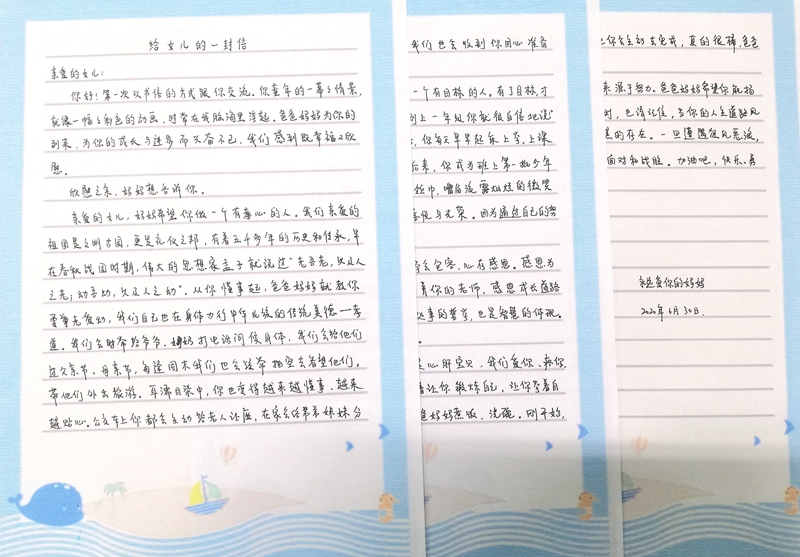 给女儿的一封信
亲爱的女儿:
你好!第一次以书信的方式跟你交流。你童年的一幕幕情景,
就像一幅幅彩色的动画,时常在我脑海里浮起。爸爸妈妈为你的
到来,为你的成长与进步而兴奋不已,我们感到既幸福又欣
慰。
欣慰之余,妈妈想告诉你。
亲爱的女儿,妈妈希望你做一个有孝心的人。我们亲爱的
祖国是文明古国,更是礼仪之邦,有着五千多年的历史和传承,早
在春秋战国时期,伟大的思想家孟子就说过“老吾老,以及人
之老;幼吾幼,以及人之幼”。从你懂事起,爸爸妈妈就教你
要尊老爱幼,我们自己也在身体力行中华民族的传统美德—孝
道。我们会时常给爷爷、奶奶打电话问候身体,我们会给他们
过父亲节、母亲节,每逢周末我们也会经常抽空去看望他们,
带他们外出旅游。耳濡目染中,你也变得越来越懂事、越来
越贴心。公交车上你都会主动给老人让座,在家会给弟弟妹妹分
我们也会收到你用心准备
一个有目标的人。有了目标,才
刚上一年级你就很自信地说“
,你每天早早起床上学,上课
后来,你成为班上第一批少年
领巾,嘴角泛露灿烂的微笑
喜悦与光荣。因为通过自己的努
学会包容,心存感恩。感恩为
育你的老师,感恩成长道路
处事的哲学,也是智慧的体现。
心肝宝贝,我们爱你、疼你,
让你锻炼自己,让你学着自
爸妈妈煮饭、洗碗。刚开始,
你会主动去完成,真的很棒,爸爸
来源于努力。爸爸妈妈希望你能拍
时,也请记住,当你的人生道路风
美的存在。一旦遭遇狂风恶浪,
面对和战胜。加油吧,快乐、勇
永远爱你的妈妈
2020年6月30日.